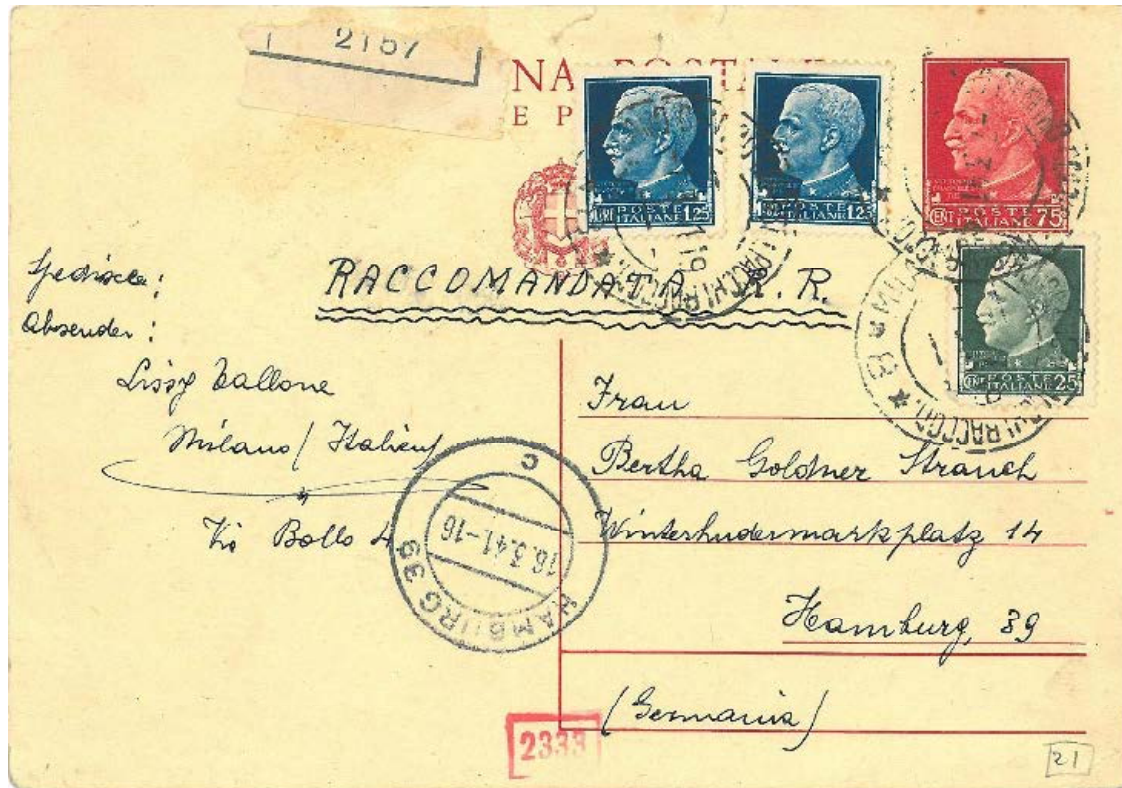 2157
NA POSTA
E P
LIRE POSTE ITALIANE 1.25
LIRE POSTE ITALIANE 1.25
CENT POSTE ITALIANE 75
CENT POSTE ITALIANE 25
RACCOMANDATA R.R.
Spedisce:
Absender:
Lissy Tallone
Milano / Italien
Via Bollo 4
Frau
Bertha Goldner Strauch
Winterhudermarkplatz 14
Hamburg, 39
(Germania)
HAMBURG 39
16.3.41-16
C
2333
21